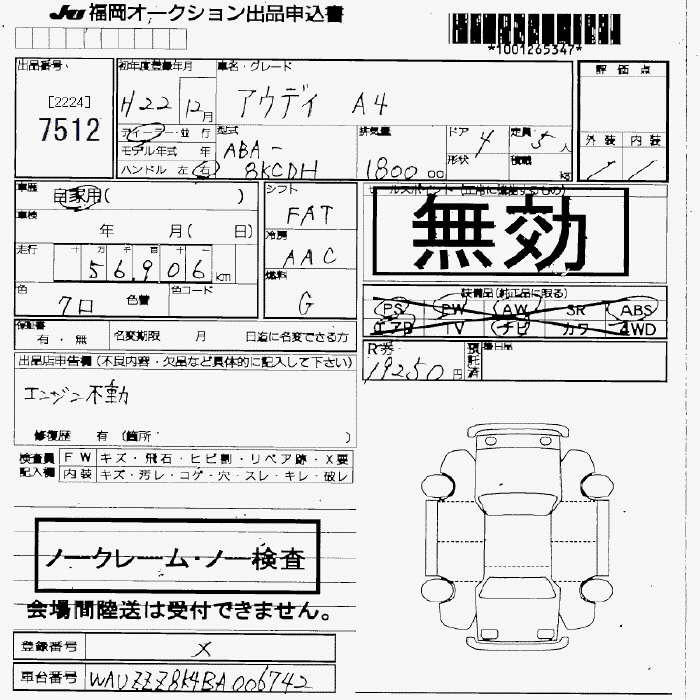 JU 福岡オークション出品申込書
*1001265347*
出品番号 初年度登録年月 車名・グレード 評価点
[2224]
7512
H22 12月 アウディ A4
ディーラー・並行 型式 排気量 ドア 4 定員 5人 外装 内装
モデル年式 年 ABA- 形状 積載
ハンドル 左 右 8KCDH 1800 00 kg
車歴 自家用( ) シフト セールスポイント(正常に機能するもの)
FAT
無効
車検 年 月( 日) 冷房
走行 十 万 千 百 十 一 AAC
56,906 km 燃料
色 色替 色コード G 装備品(純正品に限る)
7ロ PS PW AW SR ABS
エアB TV ナビ カワ 4WD
保証書 有・無 名変期限 月 日迄に名変できる方 R券 預託済 後日品
19250円
出品店申告欄(不良内容・欠品など具体的に記入して下さい)
エンジン不動
修復歴 有(箇所 )
検査員 FW キズ・飛石・ヒビ割・リペア跡・X要
記入欄 内装 キズ・汚レ・コゲ・穴・スレ・キレ・破レ
ノークレーム・ノー検査
会場間陸送は受付できません。
登録番号 X
車台番号 WAUZZZ8K4BA006742